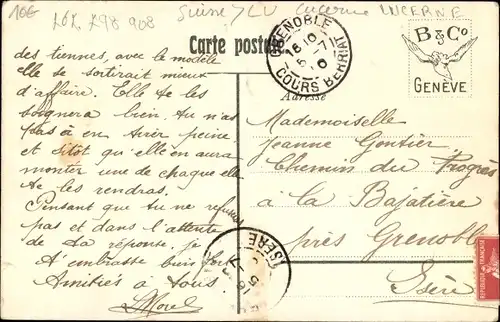 10€
Suisse / LU Lucerne LUCERNE
Carte postale
GRENOBLE
COURS BERRIAT
B & Co
GENÈVE
Adresse
des tiennes, avec le modèle
elle se sortirait mieux
d'affaire. Elle te les
soignera bien. Tu n'as
pas à en avoir peine
et sitôt qu'elle en aura
monter une de chaque elle
te les rendras.
Pensant que tu ne refuseras
pas et dans l'attente
de ta réponse, je
t'embrasse bien fort
Amitiés à tous
Morel
Mademoiselle
Jeanne Gontier
Chemin du Progrès
à la Bajatière
près Grenoble
Isère
ISÈRE